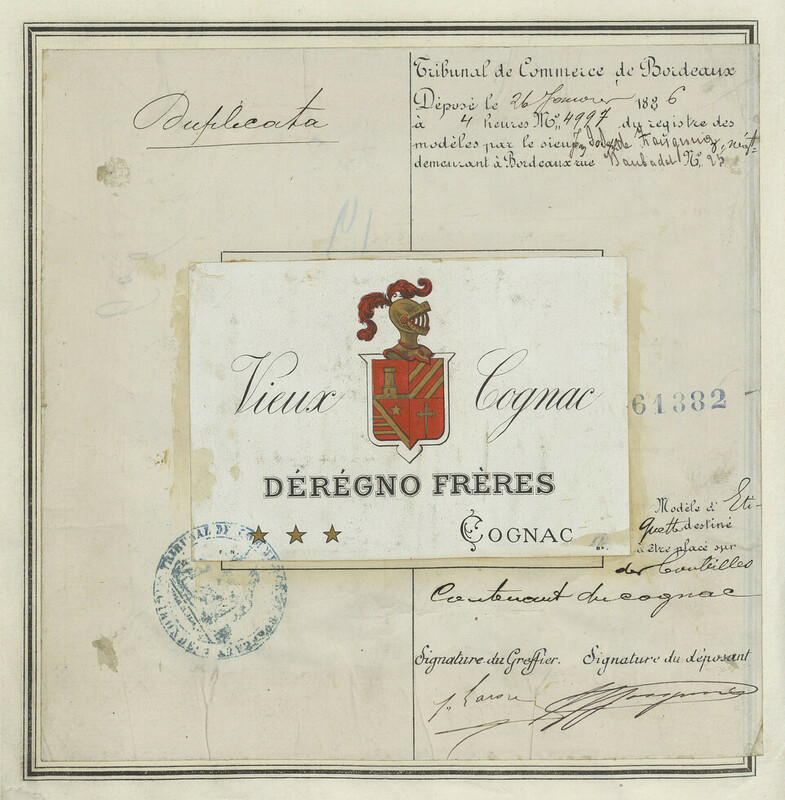 Duplicata
Tribunal de Commerce de Bordeaux
Déposé le 26 Janvier 1886
à 4 heures Nº 4997 du registre des
modèles par le sieur
demeurant à Bordeaux rue Nº 25
Vieux Cognac
61382
DÉRÉGNO FRÈRES
COGNAC
Modèle d'Eti-
quette destiné
à être placé sur
des bouteilles
Contenant du cognac
TRIBUNAL DE COMMERCE
Signature du Greffier. Signature du déposant